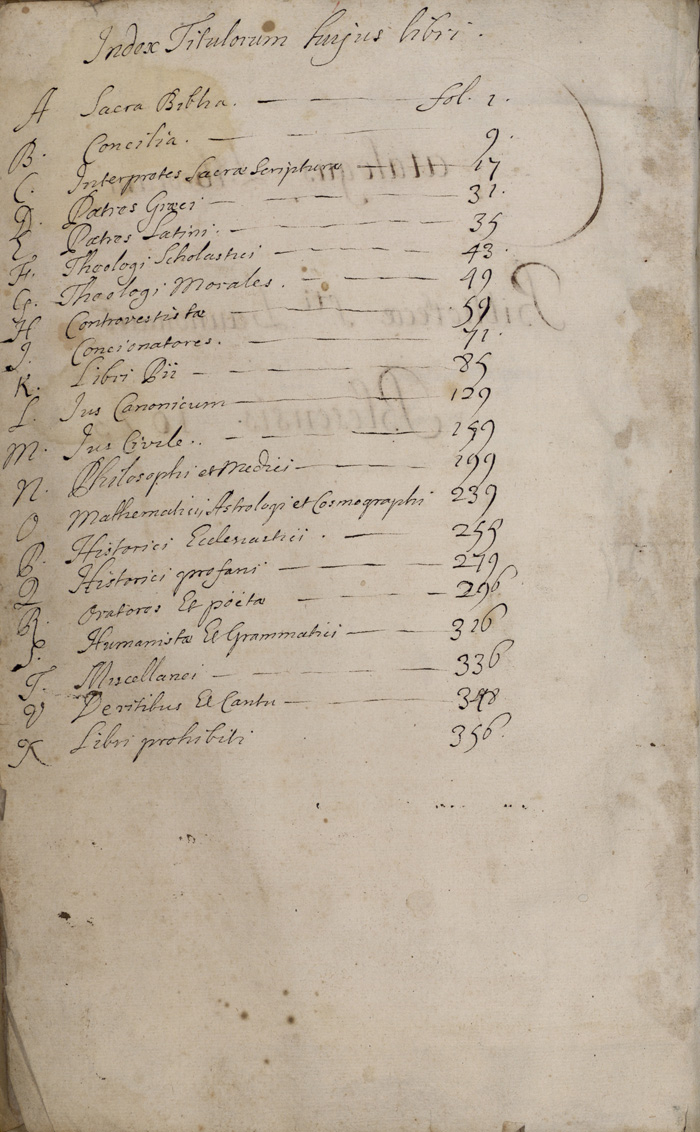 Index Titulorum hujus libri.
A Sacra Biblia. fol. 1.
B. Concilia. 9.
C. Interpretes Sacræ Scripturæ 17
D. Patres Græci 31.
E Patres Latini. 35
F. Theologi Scholastici 43.
G. Theologi Morales. 49
H Controvestistæ 59
J. Concionatores. 71.
K. Libri Pii 85
L. Jus Canonicum 129
M. Jus Civile.. 159
N. Philosophi et Medici 199
O Mathematici, Astrologi et Cosmographi 239
P. Historici Ecclesiastici. 255
Q Historici profani 279
R. Oratores Et poëtæ 296
S. Humanistæ Et Grammatici 316
T. Miscellanei 336
V De ritibus Et Cantu 348
X Libri prohibiti 356.